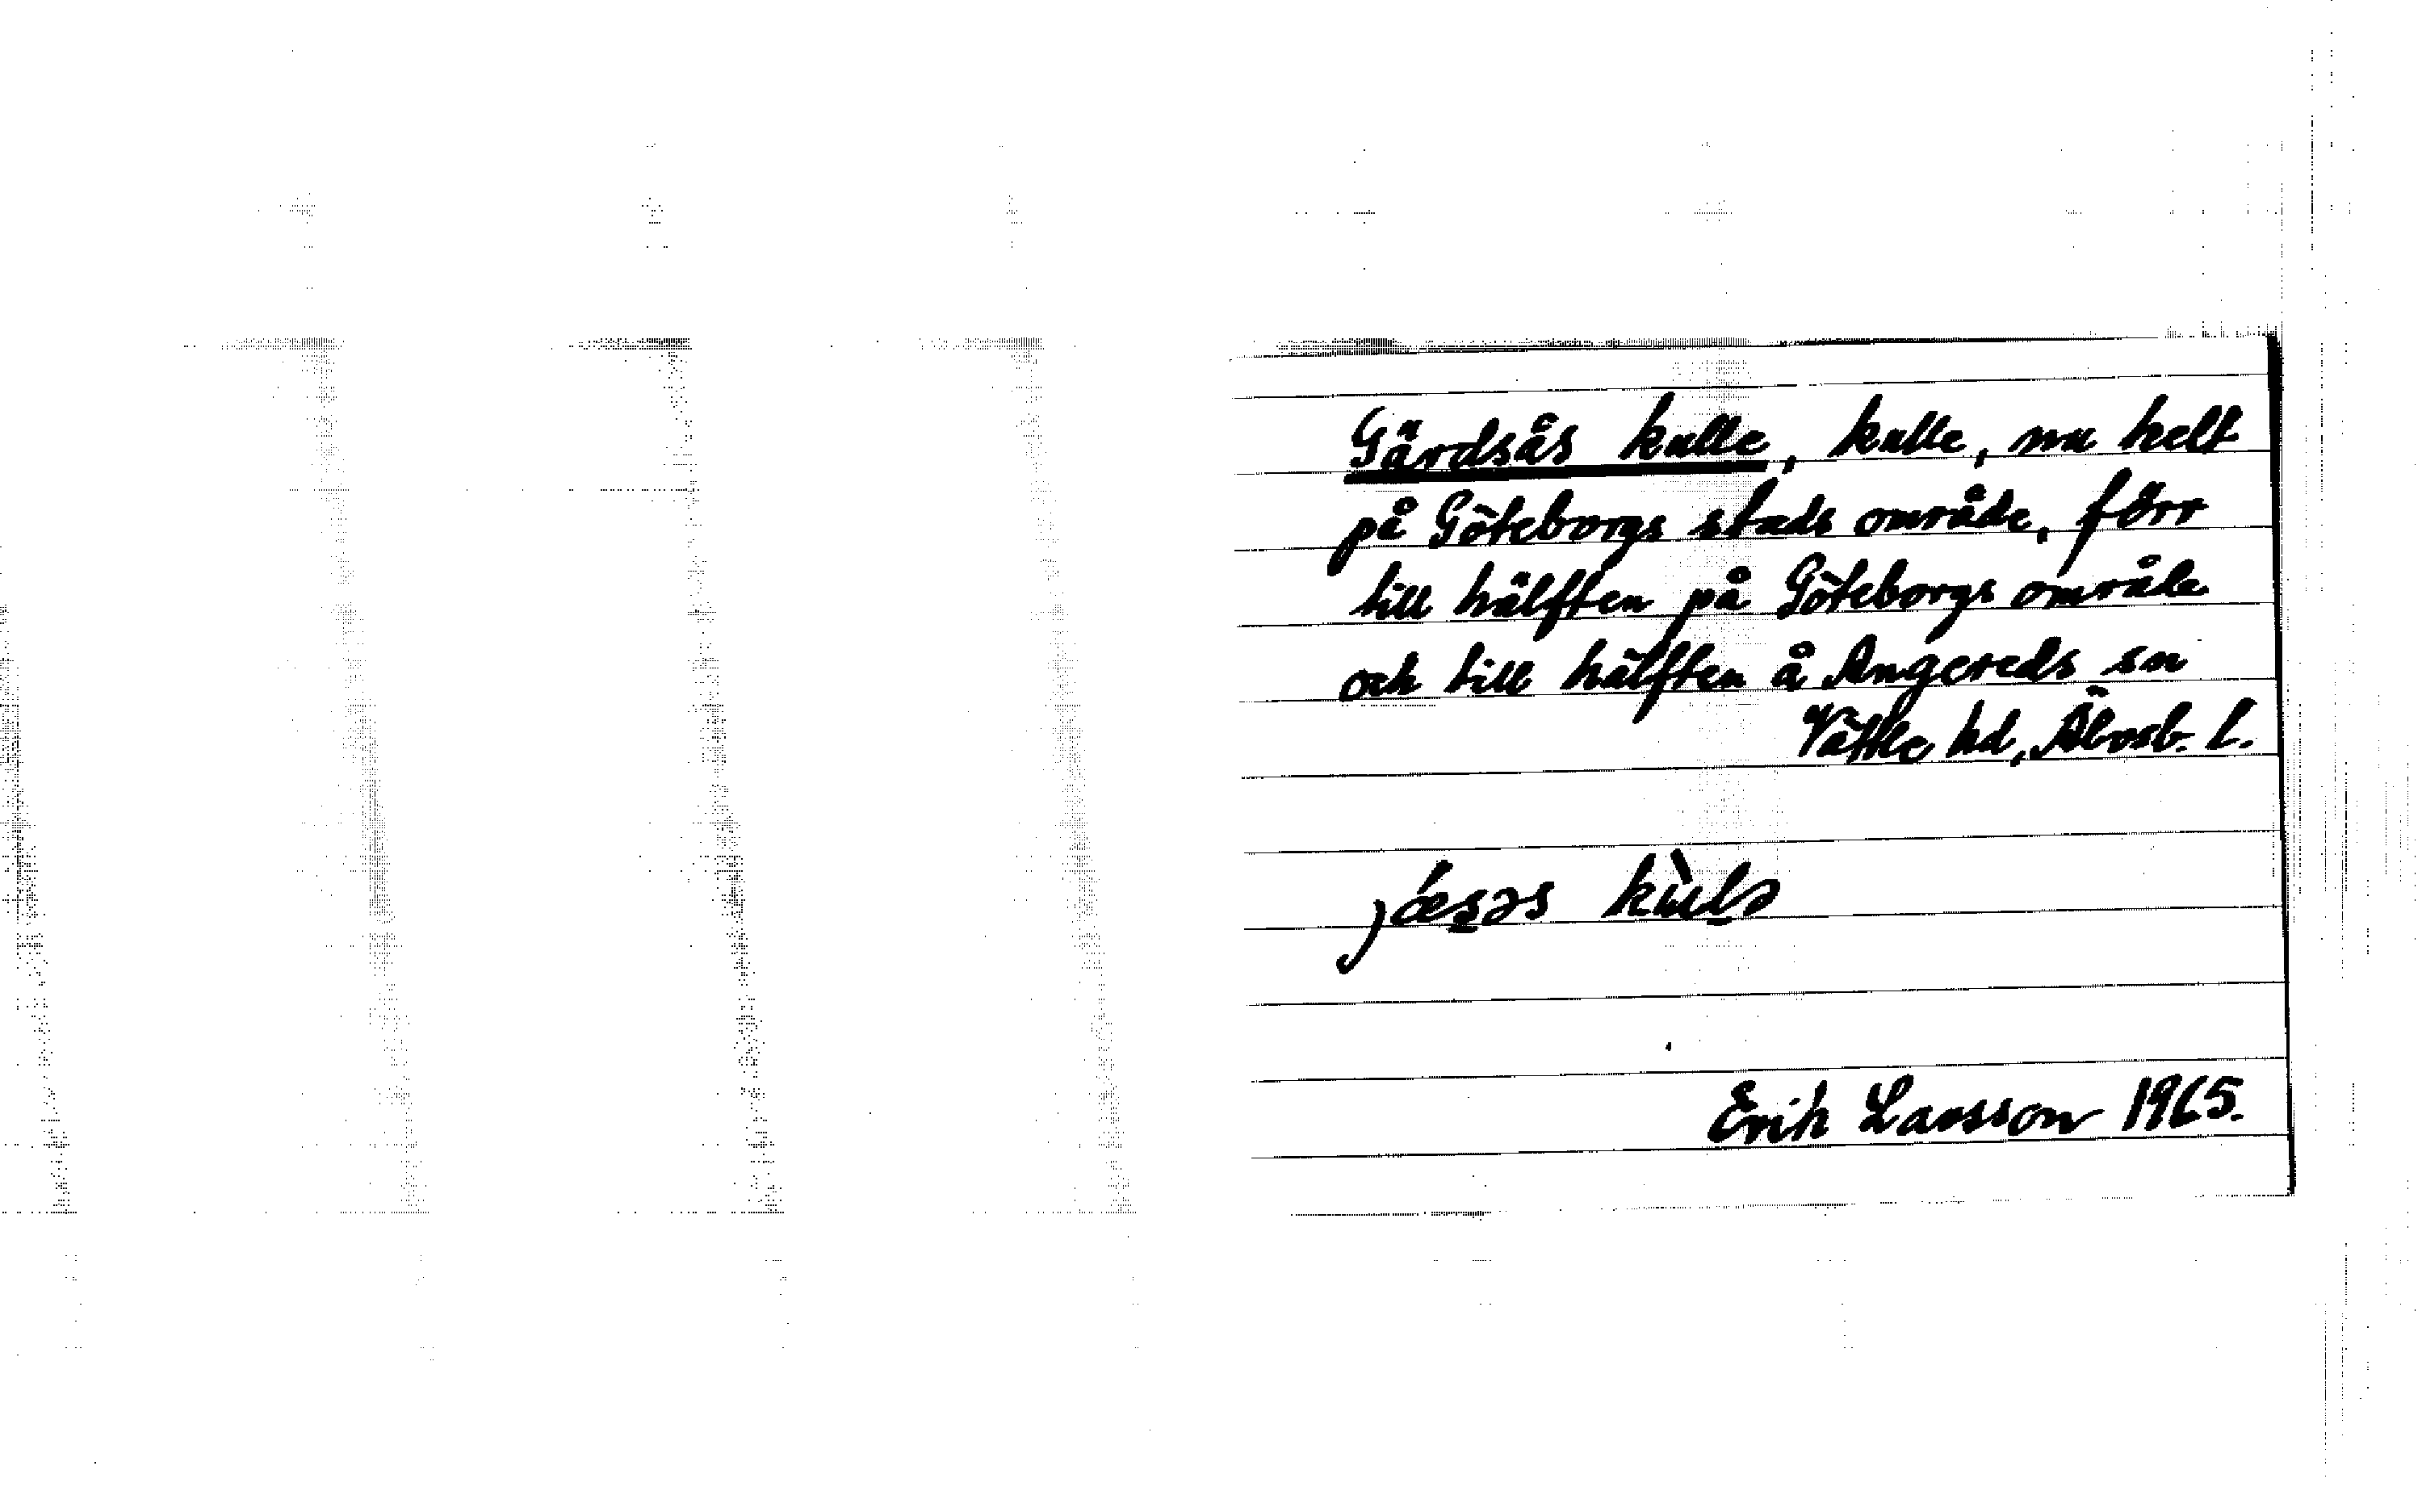 Gärdsås kulle, kulle, nu helt
på Göteborgs stads område, förr
till hälften på Göteborgs område
och till hälften å Angereds sn
Vättle hd, Älvsb. l.
jæ̀s̲əs kùl̲ə
Erik Larsson 1965.